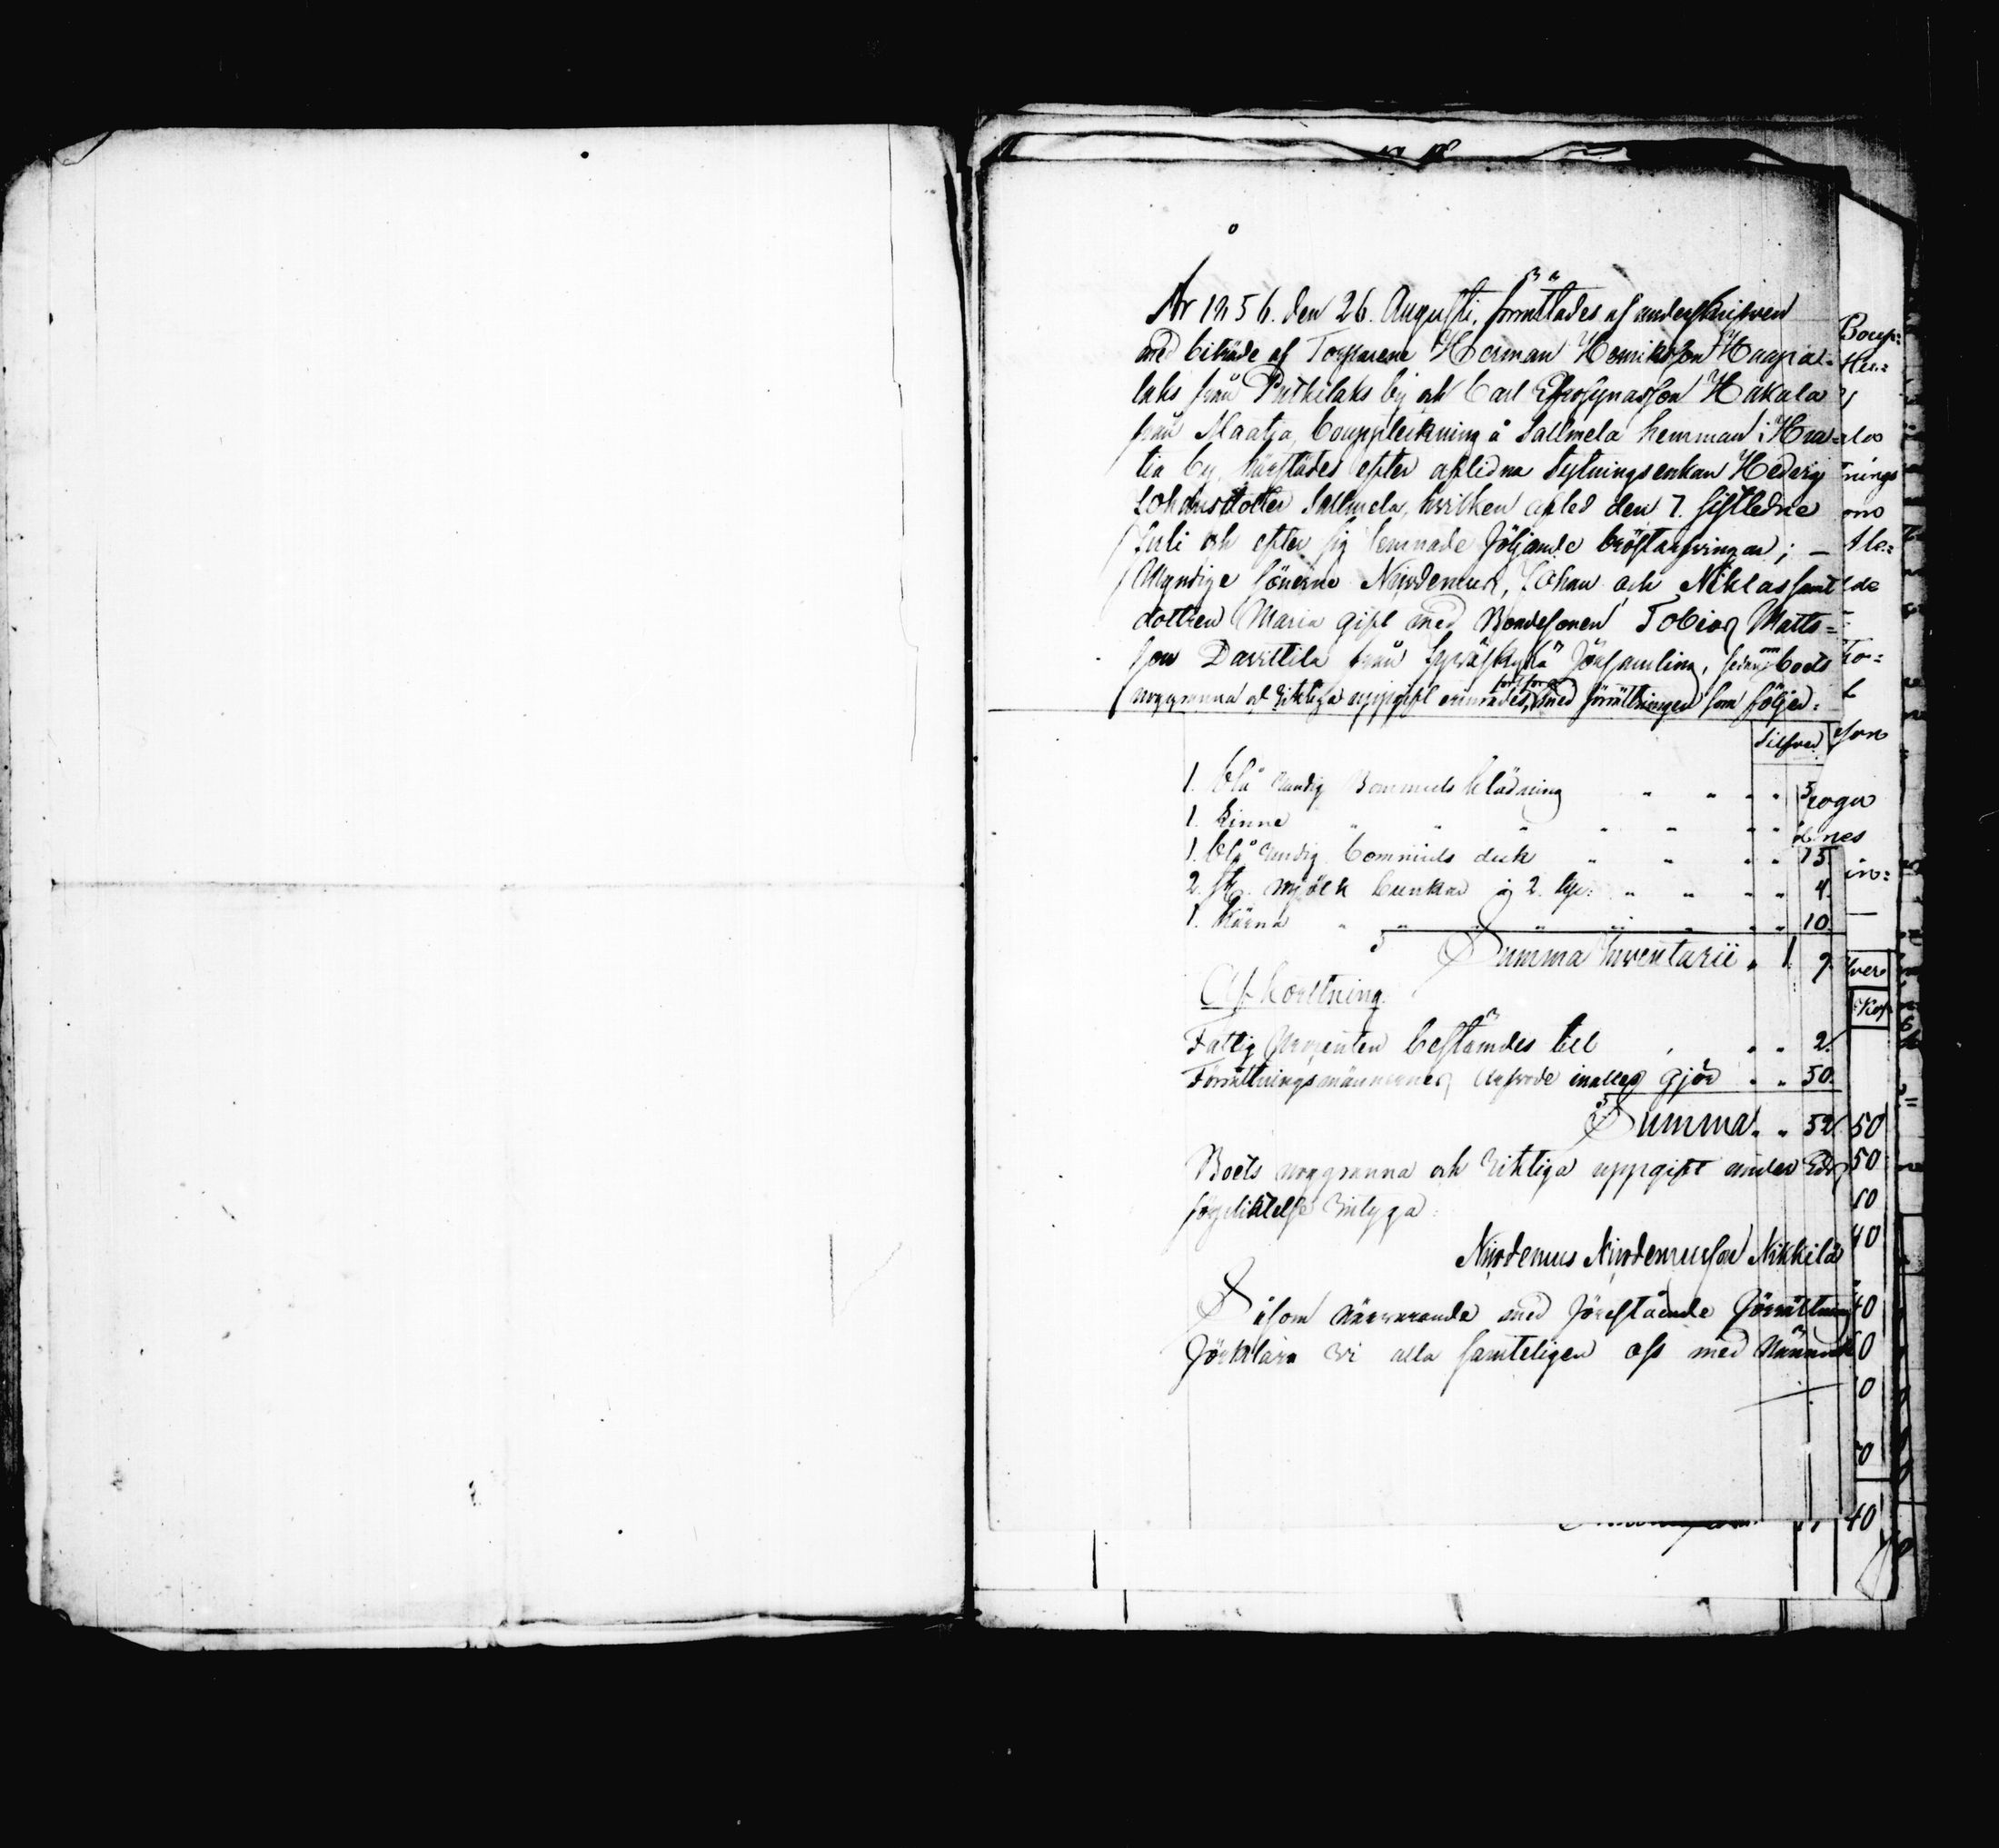 År 1856. den 26. Augusti, förrättades af underskrifven
med biträde af Torparene Herman Henriksson Haapa=
laks från Putkilaks by och Carl Efrosynasson Hakala
från Maatia, bouppteckning å Sallmela hemman i Hra=
tia by, härstädes efter aflidna Sytningsenkan Hedvig
Johansdotter Sallmela, hvilken afled den 7. sistledne
Juli och efter sig lemnade följande bröstarfvingar; —
Myndige sönerne Nicodemus, Johan och Niklas samt
dottren Maria gift med Bondesonen Tobias Matts=
son Davittila från Jyväskylä församling, sedan om boets
noggranna och riktiga uppgift erinrades, fortfors med förrättningen som följer:
Silfver
1. blå randig Bommuls klädning " " " " 5
1. kinne " " " " " " "
1. blå randig bommuls duk " " " " 15.
2. st. mjölk bunkar á 2. kp: " " " " 4.
1. kärna " " " " " " " " 10.
Summa Inventarii " 1. 9.
Afkortning.
Fattig procenten bestämdes till " " " 2.
Förrättningsmännernes arfvode inalles gjör " " 50.
Summa " " 52.
Boets noggranna och riktiga uppgift under Eds
förpliktelse intyga:
Nicodemus Nicodemusson Nikkilä
Såsom närvarande med förestående förrättning
förklara vi alla samteligen oss med
Boup:
nings
son
Kop
50
50
10
40
40
40